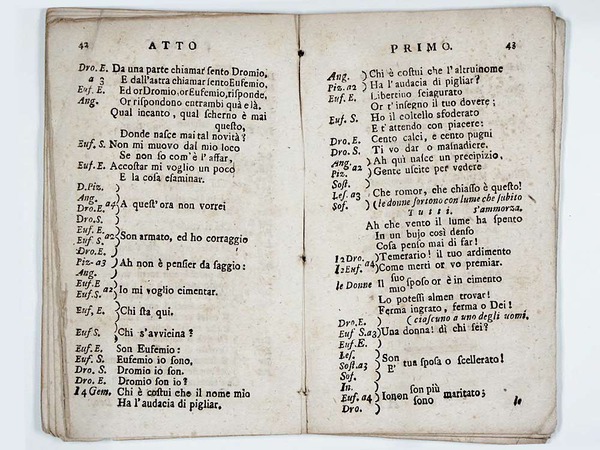 42 ATTO
Dro. E. Da una parte chiamar sento Dromio,
a 3 E dall'altra chiamar sento Eufemio,
Euf. E. Ed or Dromio, or Eufemio, risponde,
Ang. Or rispondono entrambi quà e là.
Qual incanto, qual scherno è mai
questo,
Donde nasce mai tal novità?
Euf. S. Non mi muovo dal mio loco
Se non so com'è l'affar,
Euf. E. Accostar mi voglio un poco
E la cosa esaminar.
D. Piz. )
Ang. )
Dro. E. a4 ) A quest'ora non vorrei
Dro. S. )
Euf. E. )
Euf S. a2 ) Son armato, ed ho corraggio
Dro. E. )
Piz. a3 ) Ah non è pensier da saggio:
Ang. )
Euf. E )
Euf. S. a2 ) Io mi voglio cimentar.
Euf, E. ) Chi sta qui.
Euf S. ) Chi s'avvicina?
Euf. E. Son Eufemio:
Euf. S. Eufemio io sono,
Dro. S. Dromio io son.
Dro. E. Dromio son io?
I 4 Gem. Chi è costui che il nome mio
Ha l'audacia di pigliar.
PRIMO. 43
Ang. ) Chi è costui che l'altrui nome
Piz. a2 ) Ha l'audacia di pigliar?
Euf. E. Libertino sciagurato
Or t'insegno il tuo dovere;
Euf. S. Ho il coltello sfoderato
E t'attendo con piacere:
Dro. E. Cento calci, e cento pugni
Dro. S. Ti vo dar o masnadiere.
Ang. ) Ah quì nasce un precipizio,
Piz. a2 ) Gente uscite per vedere
Sost. )
Les. a3 ) Che romor, che chiasso è questo!
Sof. ) (le donne sortono con lume che subito
Tutti. s'ammorza.
Ah che vento il lume ha spento
In un bujo così denso
Cosa penso mai di far!
I 2 Dro. ) Temerario! il tuo ardimento
I 2 Euf. a4 ) Come merti or vo premiar.
le Donne Il suo mio sposo or è in cimento
Lo potessi almen trovar!
Ferma ingrato, ferma o Dei!
Dro. E. ) (ciascuno a uno degli uomi,
Euf S. a3 ) Una donna! di chi sei?
Euf. E. )
Les. )
Sost. a3 ) Son E' tua sposa o scellerato!
Sof. )
In. )
Euf. a4 ) Io non son più sono maritato;
Dro. )
Io